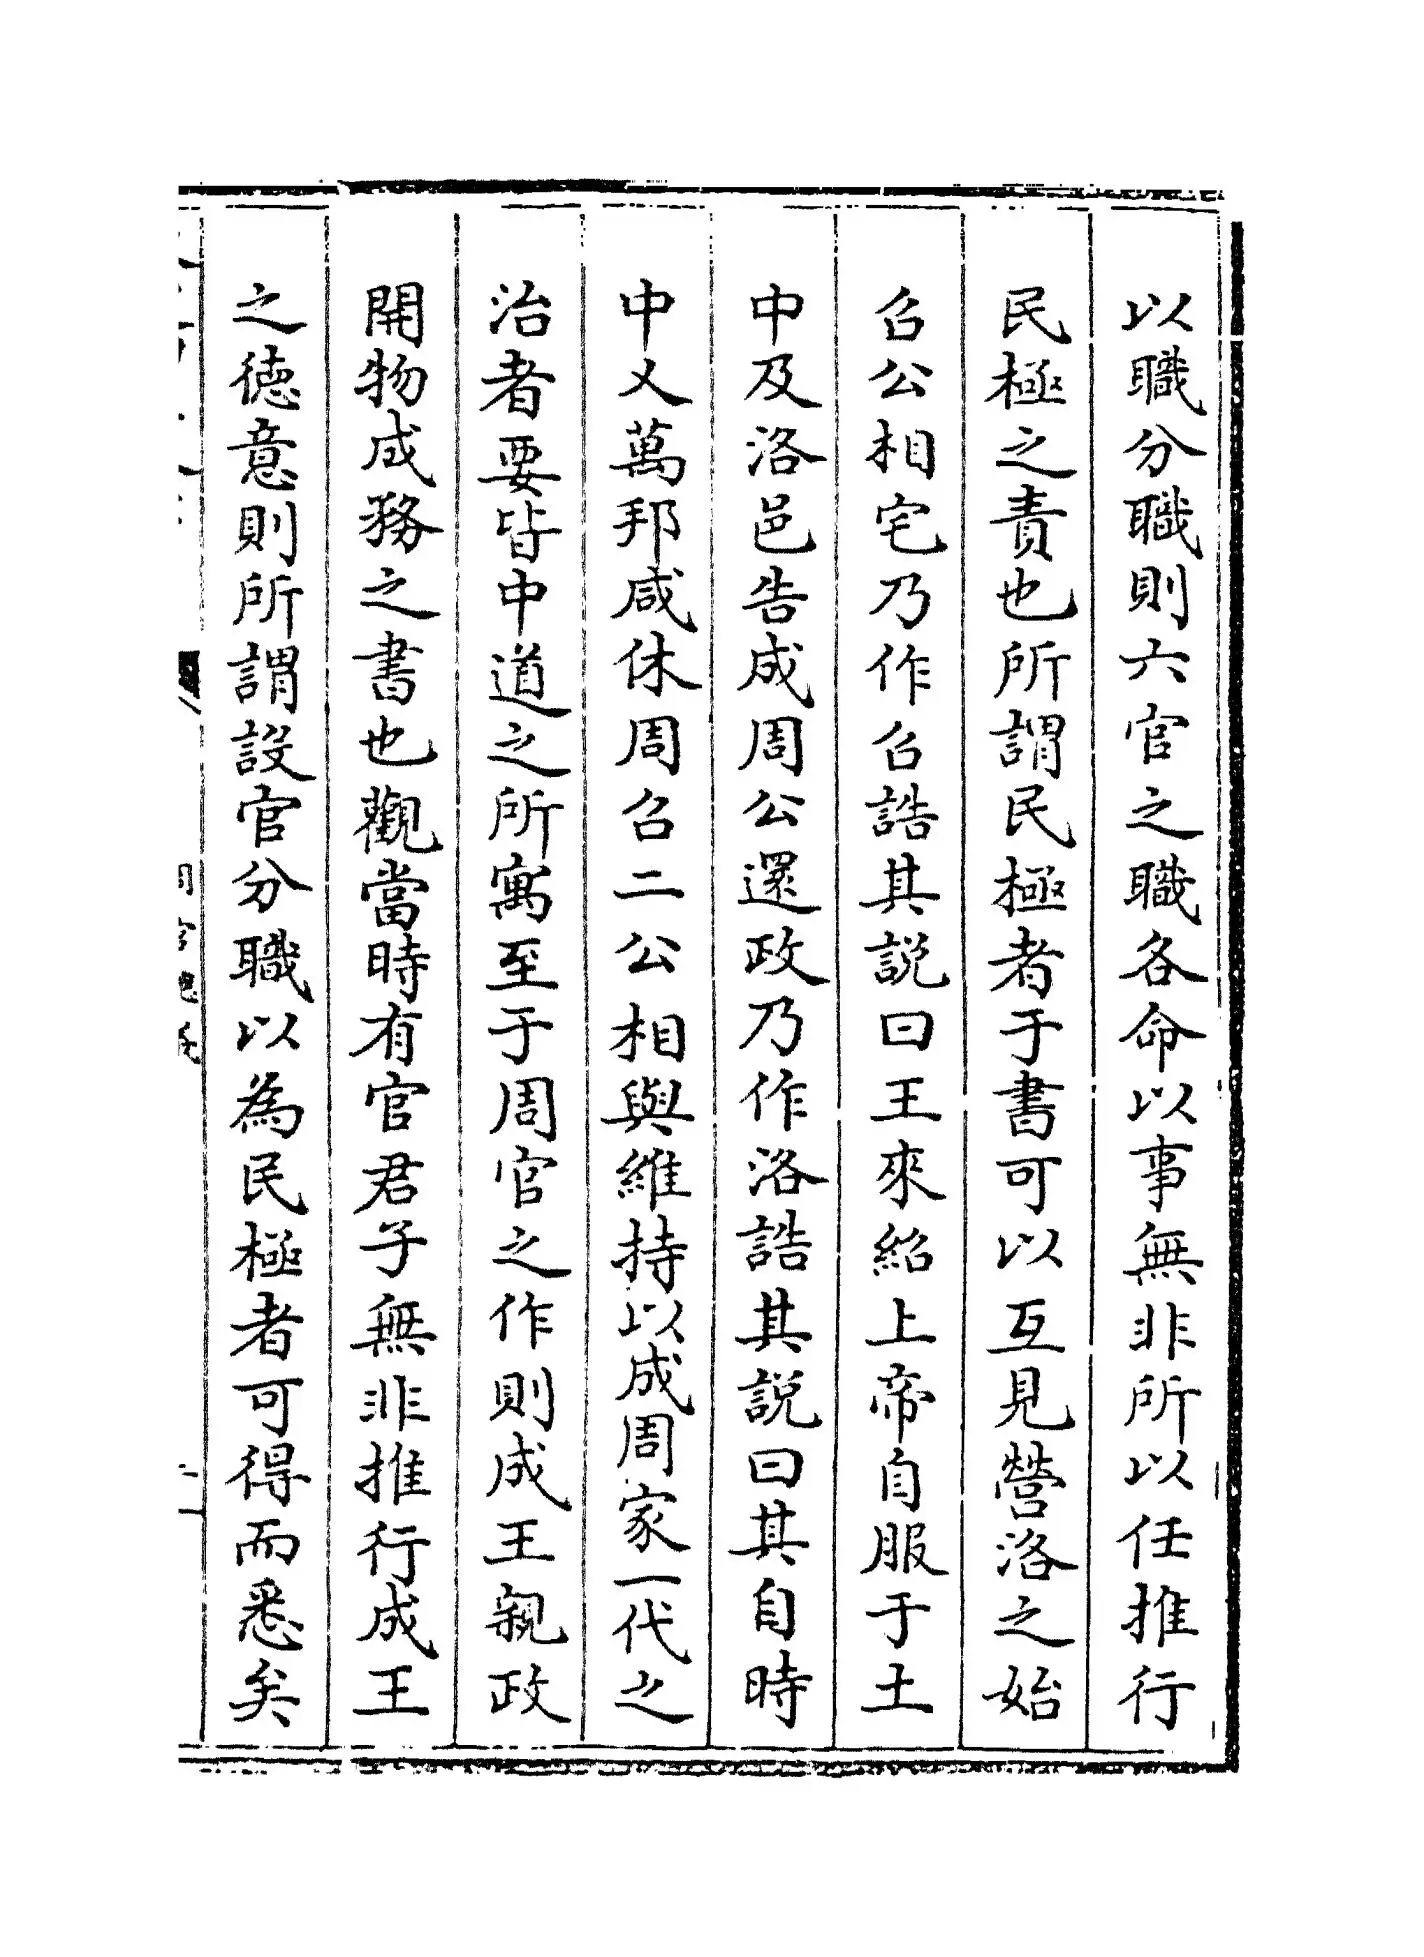 以職分職則六官之職各命以事無非所以任推行
民極之責也所謂民極者于書可以互見營洛之始
召公相宅乃作召誥其説曰王來紹上帝自服于土
中及洛邑告成周公還政乃作洛誥其説曰其自時
中乂萬邦咸休周召二公相與維持以成周家一代之
治者要皆中道之所寓至于周官之作則成王親政
開物成務之書也觀當時有官君子無非推行成王
之徳意則所謂設官分職以為民極者可得而悉矣